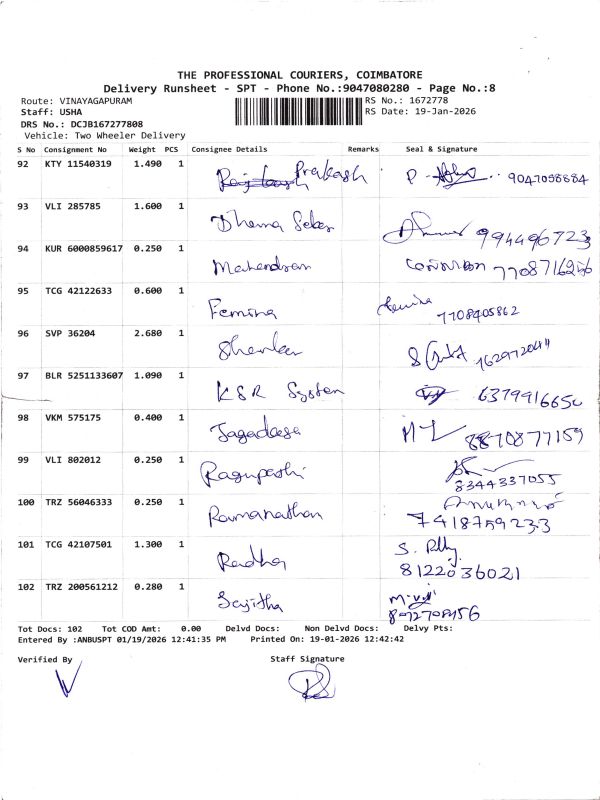 THE PROFESSIONAL COURIERS, COIMBATORE
Delivery Runsheet - SPT - Phone No.:9047080280 - Page No.:8
Route: VINAYAGAPURAM RS No.: 1672778
Staff: USHA RS Date: 19-Jan-2026
DRS No.: DCJB167277808
Vehicle: Two Wheeler Delivery
S No Consignment No Weight PCS Consignee Details Remarks Seal & Signature
92 KTY 11540319 1.490 1 Prakash P. 9047058884
93 VLI 285785 1.600 1 Dhana Sekar 994496723
94 KUR 6000859617 0.250 1 Mahendran
95 TCG 42122633 0.600 1 Femina 7708405862
96 SVP 36204 2.680 1 Shankar
97 BLR 5251133607 1.090 1 KSR System 6379916650
98 VKM 575175 0.400 1 Jagadeesa 8870877159
99 VLI 802012 0.250 1 Ragupathi 8344337055
100 TRZ 56046333 0.250 1 Ramanathan 7418759233
101 TCG 42107501 1.300 1 Radha S. 8122036021
102 TRZ 200561212 0.280 1 Sajitha
Tot Docs: 102 Tot COD Amt: 0.00 Delvd Docs: Non Delvd Docs: Delvy Pts:
Entered By :ANBUSPT 01/19/2026 12:41:35 PM Printed On: 19-01-2026 12:42:42
Verified By Staff Signature